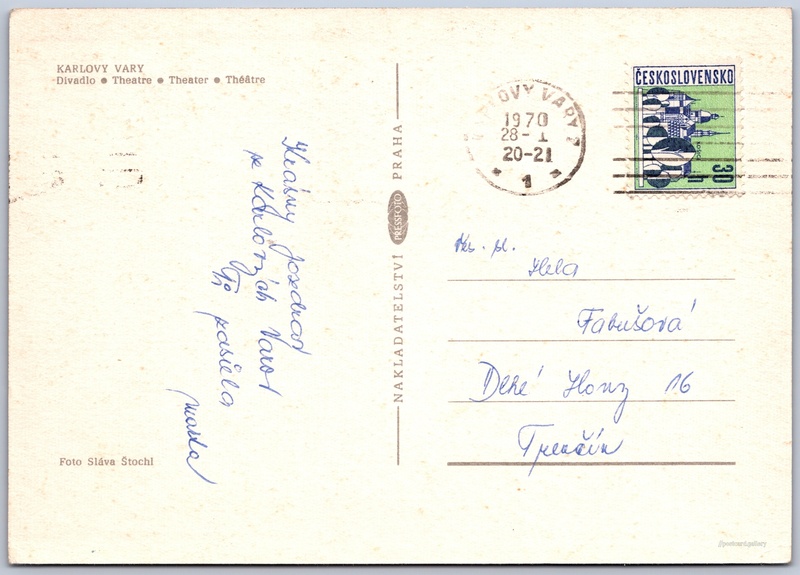 KARLOVY VARY
Divadlo • Theatre • Theater • Théâtre
Krásny pozdrav
ze Karlových Varov
Ti zasiela
Marta
Foto Sláva Štochl
NAKLADATELSTVÍ PRESSFOTO PRAHA
KARLOVY VARY
1970
28-I
20-21
* 1 *
ČESKOSLOVENSKO
30 h
Hela
Fabušová
Dlhé Hony 16
Trenčín
postcard.gallery